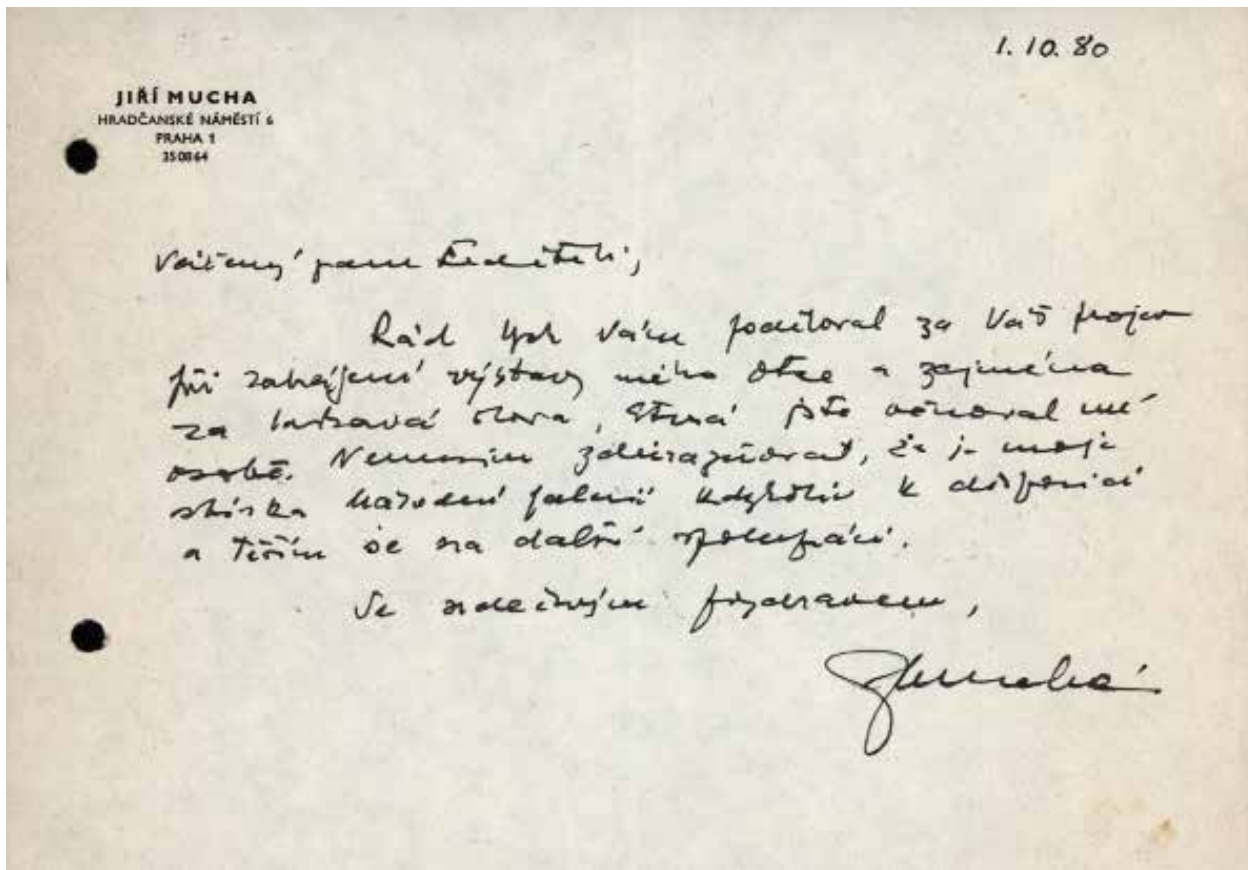 1. 10. 80
JIŘÍ MUCHA
HRADČANSKÉ NÁMĚSTÍ 6
PRAHA 1
350864
Vážený pane řediteli,
Rád bych Vám poděkoval za Váš projev
při zahájení výstavy mého otce a zejména
za laskavá slova, která jste věnoval mé
osobě. Nemusím zdůrazňovat, že je moje
sbírka Národní galerii kdykoliv k disposici
a těším se na další spolupráci.
Se srdečným pozdravem,
JMucha